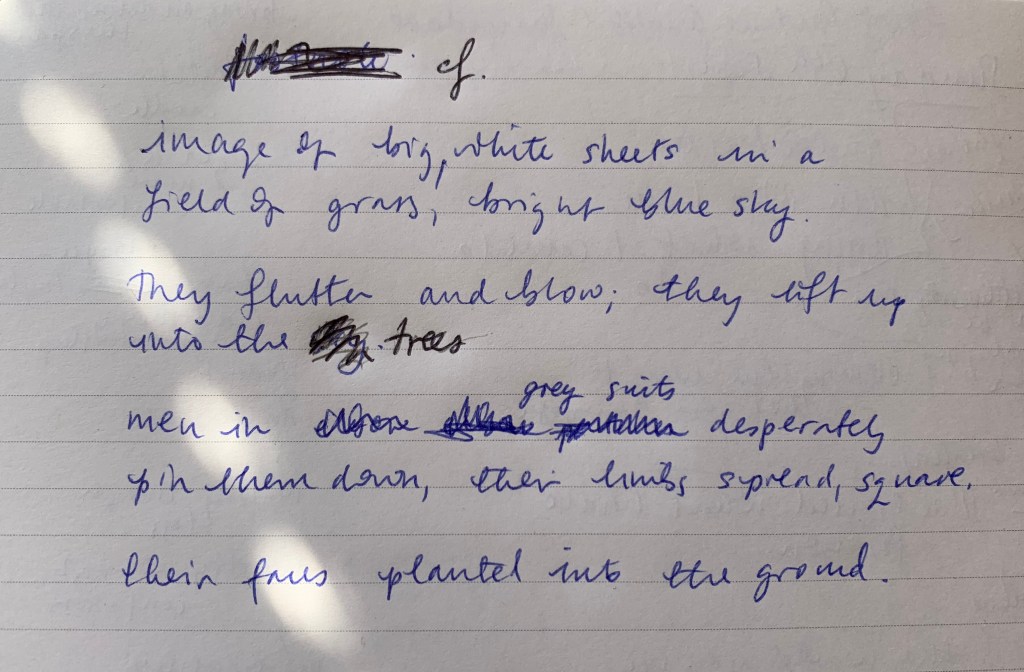 cf.
image of big, white sheets in a
field of grass, bright blue sky.
They flutter and blow; they lift up
into the trees
grey suits
men in desperately
pin them down, their limbs spread, square.
their faces planted into the ground.